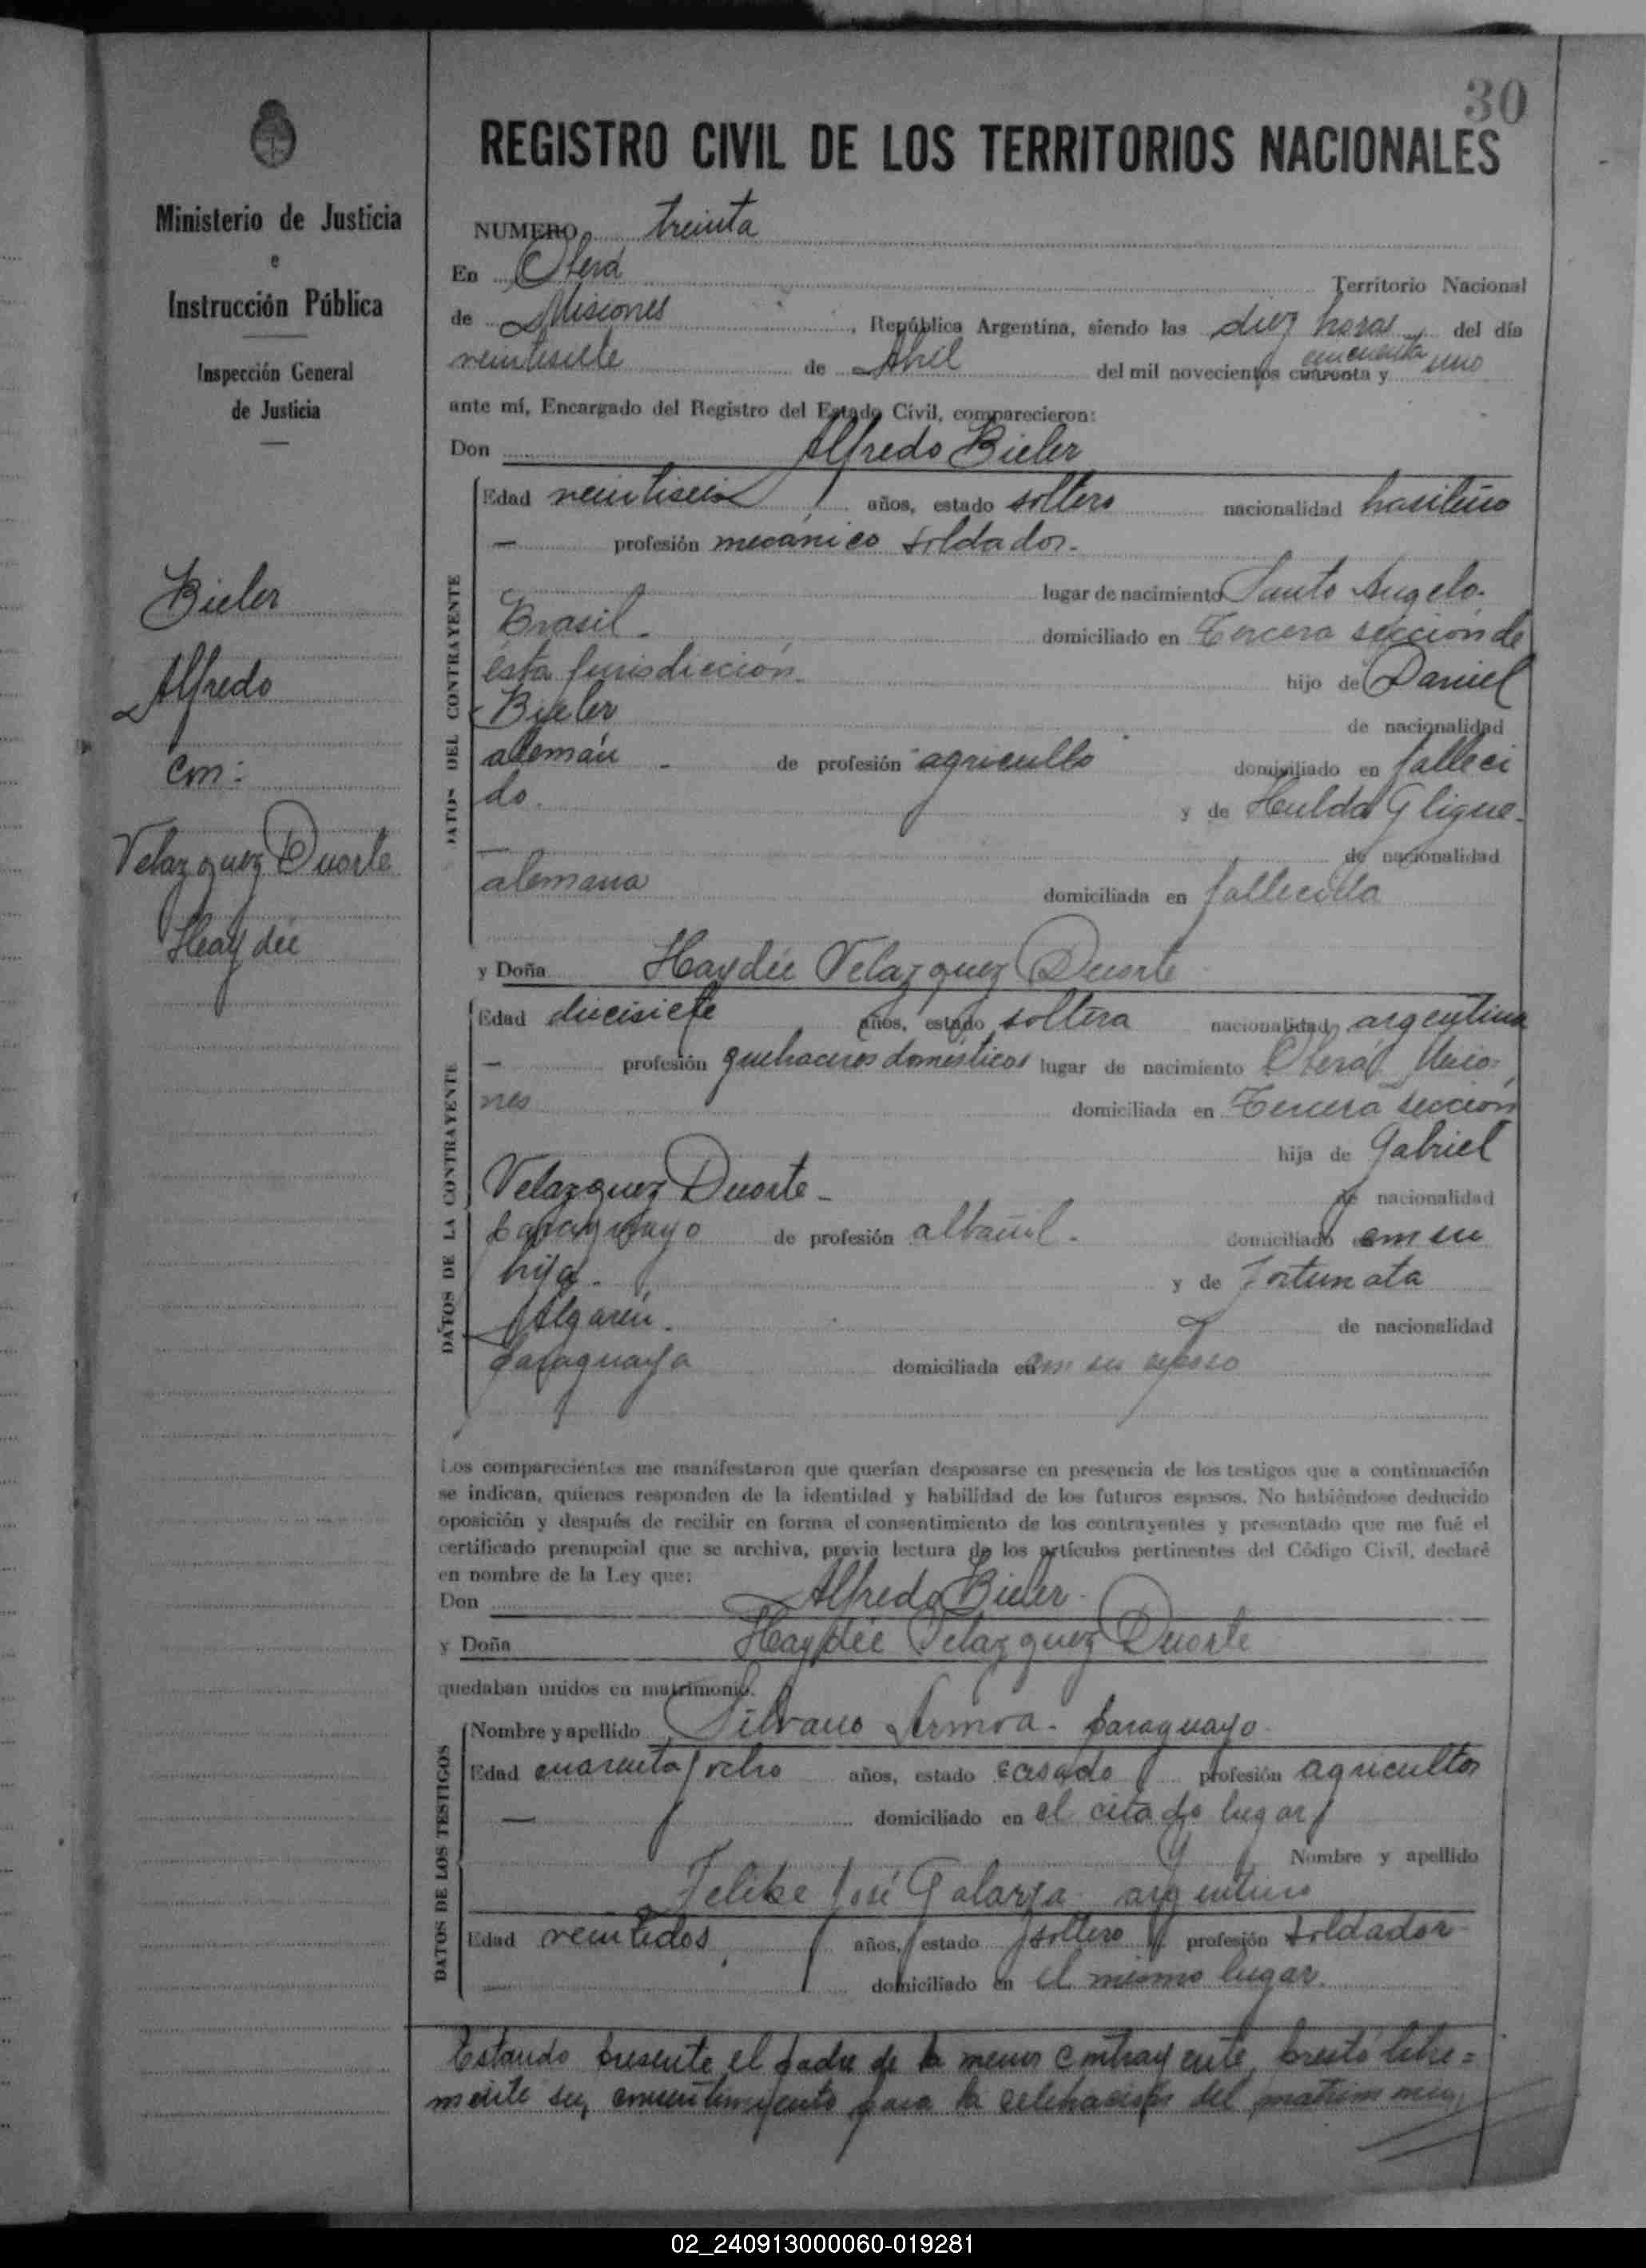 30
REGISTRO CIVIL DE LOS TERRITORIOS NACIONALES
Ministerio de Justicia
e
Instrucción Pública
Inspección General
de Justicia
Bieler
Alfredo
con:
Velazquez Duarte
Haydée
NUMERO treinta
En Oberá Territorio Nacional
de Misiones, República Argentina, siendo las diez horas, del día
veintisiete de Abril del mil novecientos cuarenta y cincuenta uno
ante mí, Encargado del Registro del Estado Civil, comparecieron:
Don Alfredo Bieler
DATOS DEL CONTRAYENTE
Edad veintiseis años, estado soltero nacionalidad brasileño
— profesión mecánico soldador.
lugar de nacimiento Santo Angelo.
Brasil. domiciliado en Tercera sección de
ésta jurisdicción. hijo de Daniel
Bieler de nacionalidad
alemán de profesión agriculto domiciliado en falleci
do. y de Hulda Gligue.
— de nacionalidad
alemana domiciliada en fallecida
y Doña Haydée Velazquez Duarte
DATOS DE LA CONTRAYENTE
Edad diecisiete años, estado soltera nacionalidad argentina
— profesión quehaceres domésticos lugar de nacimiento Oberá Misio=
nes domiciliada en Tercera sección
hija de Gabriel
Velazquez Duarte - de nacionalidad
paraguayo de profesión albañil. domiciliado con su
hija. y de Fortunata
Algarín. de nacionalidad
paraguaya domiciliada en con su esposo
Los comparecientes me manifestaron que querían desposarse en presencia de los testigos que a continuación
se indican, quienes responden de la identidad y habilidad de los futuros esposos. No habiéndose deducido
oposición y después de recibir en forma el consentimiento de los contrayentes y presentado que me fué el
certificado prenupcial que se archiva, previa lectura de los artículos pertinentes del Código Civil, declaré
en nombre de la Ley que:
Don Alfredo Bieler.
y Doña Haydée Velazquez Duarte
quedaban unidos en matrimonio.
DATOS DE LOS TESTIGOS
Nombre y apellido Silvano Armoa. paraguayo.
Edad cuarenta y ocho años, estado casado profesión agricultor
— domiciliado en el citado lugar
y Nombre y apellido
Felipe José Galarza argentino
Edad veintidos años, estado soltero profesión soldador
domiciliado en el mismo lugar.
Estando presente el padre de la menor contrayente, prestó libre=
mente su consentimiento para la celebración del matrimonio
02_240913000060-019281